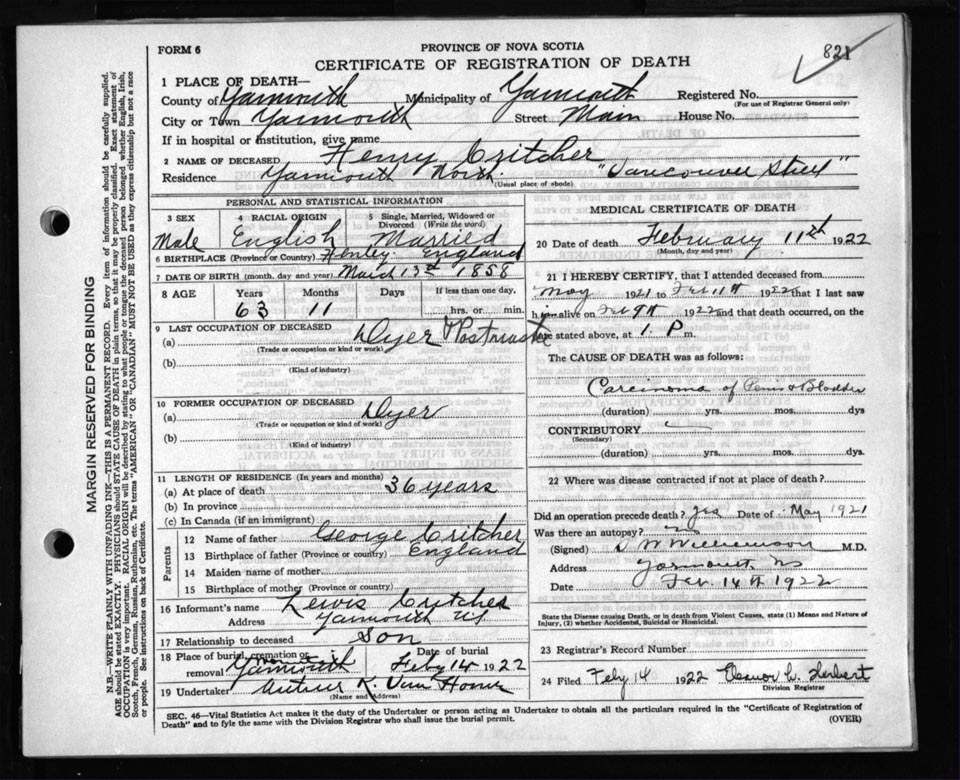 821
FORM 6
PROVINCE OF NOVA SCOTIA
CERTIFICATE OF REGISTRATION OF DEATH
MARGIN RESERVED FOR BINDING
N.B.—WRITE PLAINLY WITH UNFADING INK—THIS IS A PERMANENT RECORD. Every item of information should be carefully supplied.
AGE should be stated EXACTLY. PHYSICIANS should STATE CAUSE OF DEATH in plain terms, so that it may be properly classified. Exact statement of
OCCUPATION is very important. RACIAL ORIGIN will be described by stating to what people or tongue the deceased person belonged whether English, Irish,
Scotch, French, German, Russian, Ruthenian, etc. The terms "AMERICAN" OR "CANADIAN" MUST NOT BE USED as they express citizenship but not a race
or people. See instructions on back of Certificate.
1 PLACE OF DEATH—
County of Yarmouth Municipality of Yarmouth Registered No.
(For use of Registrar General only)
City or Town Yarmouth Street Main House No.
If in hospital or institution, give name
2 NAME OF DECEASED Henry Critcher
Residence Yarmouth North. "Vancouver Street"
(Usual place of abode)
PERSONAL AND STATISTICAL INFORMATION
3 SEX Male
4 RACIAL ORIGIN English
5 Single, Married, Widowed or Divorced (Write the word) Married
6 BIRTHPLACE (Province or Country) Henley England
7 DATE OF BIRTH (month, day and year) March 13th 1858
8 AGE Years Months Days If less than one day,
63 11 hrs. or min.
9 LAST OCCUPATION OF DECEASED
(a) Dyer & Postmaster
(Trade or occupation or kind or work)
(b)
(Kind of industry)
10 FORMER OCCUPATION OF DECEASED
(a) Dyer
(Trade or occupation or kind of work)
(b)
(Kind of industry)
11 LENGTH OF RESIDENCE (In years and months)
(a) At place of death 36 years
(b) In province
(c) In Canada (if an immigrant)
Parents
12 Name of father George Critcher
13 Birthplace of father (Province or country) England
14 Maiden name of mother
15 Birthplace of mother (Province or country)
16 Informant's name Lewis Critcher
Address Yarmouth NS
17 Relationship to deceased Son
18 Place of burial, cremation or removal Yarmouth Date of burial Feby 14 1922
19 Undertaker Arthur K. Van Horne
(Name and Address)
MEDICAL CERTIFICATE OF DEATH
20 Date of death February 11th 1922
(Month, day and year)
21 I HEREBY CERTIFY, that I attended deceased from
May 1921 to Feb 11th 1922 that I last saw
him alive on Feb 9th 1922 and that death occurred, on the
date stated above, at 1 P m.
The CAUSE OF DEATH was as follows:
Carcinoma of Penis & Bladder
(duration) yrs. mos. dys
CONTRIBUTORY
(Secondary)
(duration) yrs. mos. dys.
22 Where was disease contracted if not at place of death?
Did an operation precede death? yes Date of May 1921
Was there an autopsy? no
(Signed) Williamson M.D.
Address Yarmouth NS
Date Feb. 14th 1922
State the Disease causing Death, or in death from Violent Causes, state (1) Means and Nature of
Injury, (2) whether Accidental, Suicidal or Homicidal.
23 Registrar's Record Number
24 Filed Feby 14 1922 Herbert
Division Registrar
SEC. 46—Vital Statistics Act makes it the duty of the Undertaker or person acting as Undertaker to obtain all the particulars required in the "Certificate of Registration of
Death" and to fyle the same with the Division Registrar who shall issue the burial permit.
(OVER)